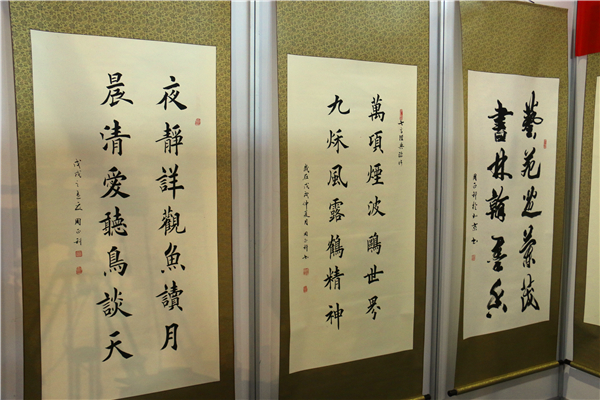 夜靜詳觀魚讀月
晨清愛聽鳥談天
萬頃煙波鷗世界
九秋風露鶴精神
藝苑茂
書林翰墨香